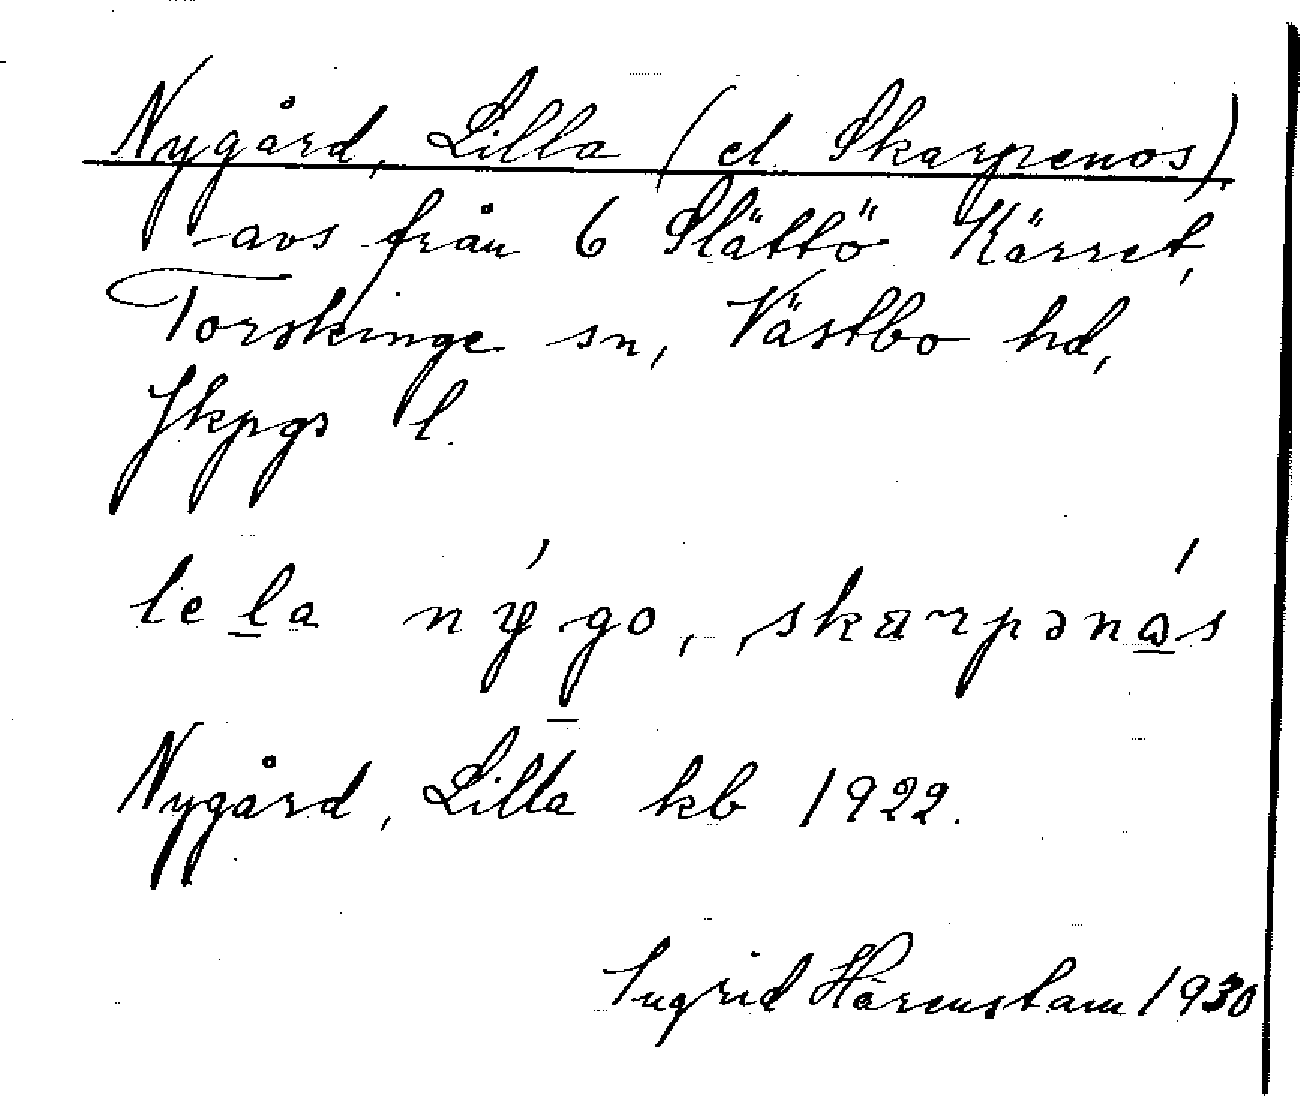 Nygård, Lilla (el. Skarpenos).
avs från 6 Slättö Kärret,
Torskinge sn, Västbo hd,
Jkpgs l.
lela nýgo, , skarpənɷ́s
Nygård, Lilla kb 1922.
Ingrid Härenstam 1930